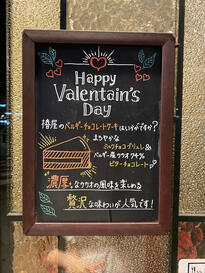 Happy
Valentain's
Day
椿屋のベルギーチョコレートケーキはいかがですか?
まろやかな
ミルクチョコブリュレ&
ベルギー産カカオ74%
ビターチョコレート
濃厚なカカオの風味を楽しめる
贅沢な味わいが人気です!